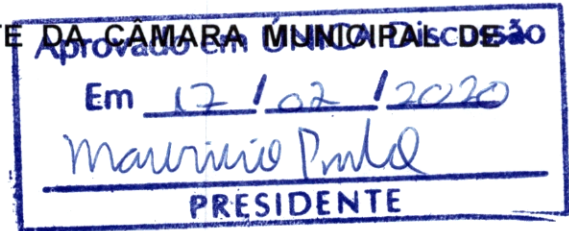 TE DA CÂMARA MUNICIPAL DE
Aprovado em ÚNICA Discussão
Em 17 / 02 / 2020
PRESIDENTE